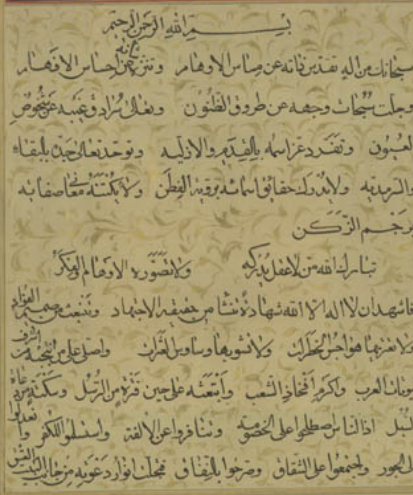 بسم الله الرحمن الرحيم
سبحانك من اله تقدس ذاته عن مساس الاوهام وتنزه ثنائه عن احساس الافهام
وجلت سبحات وجهه عن طروق الظنون وتعالى سرادق غيبه عن شخوص
العيون وتفرد عز اسمه بالقدم والازلية وتوحد تعالى جده بالبقاء
والسرمدية ولا يدرك حقائق اسمائه بروية الفطن ولا يكتنه معنا صفاته
برجم الزكن
تبارك الله من لا عقل يدركه ولا تصوره الاوهام والفكر
فاشهد ان لا اله الا الله شهادة تنشا من الاجتهاد وتنبعث من صميم الفؤاد
هواجس الخطرات ولا تشوبها وساوس واصلي على من اشرف
بيوتات العرب واكرم افخاذ الشعب وابتعثته على حين فترة من الرسل
السبل اذ الناس اصطلحوا على الخصومة وتنافروا عن الالفة واستسلموا للكفر
الجور واجتمعوا على الشقاق وصرحوا بالنفاق فجلت انوار دعوته من